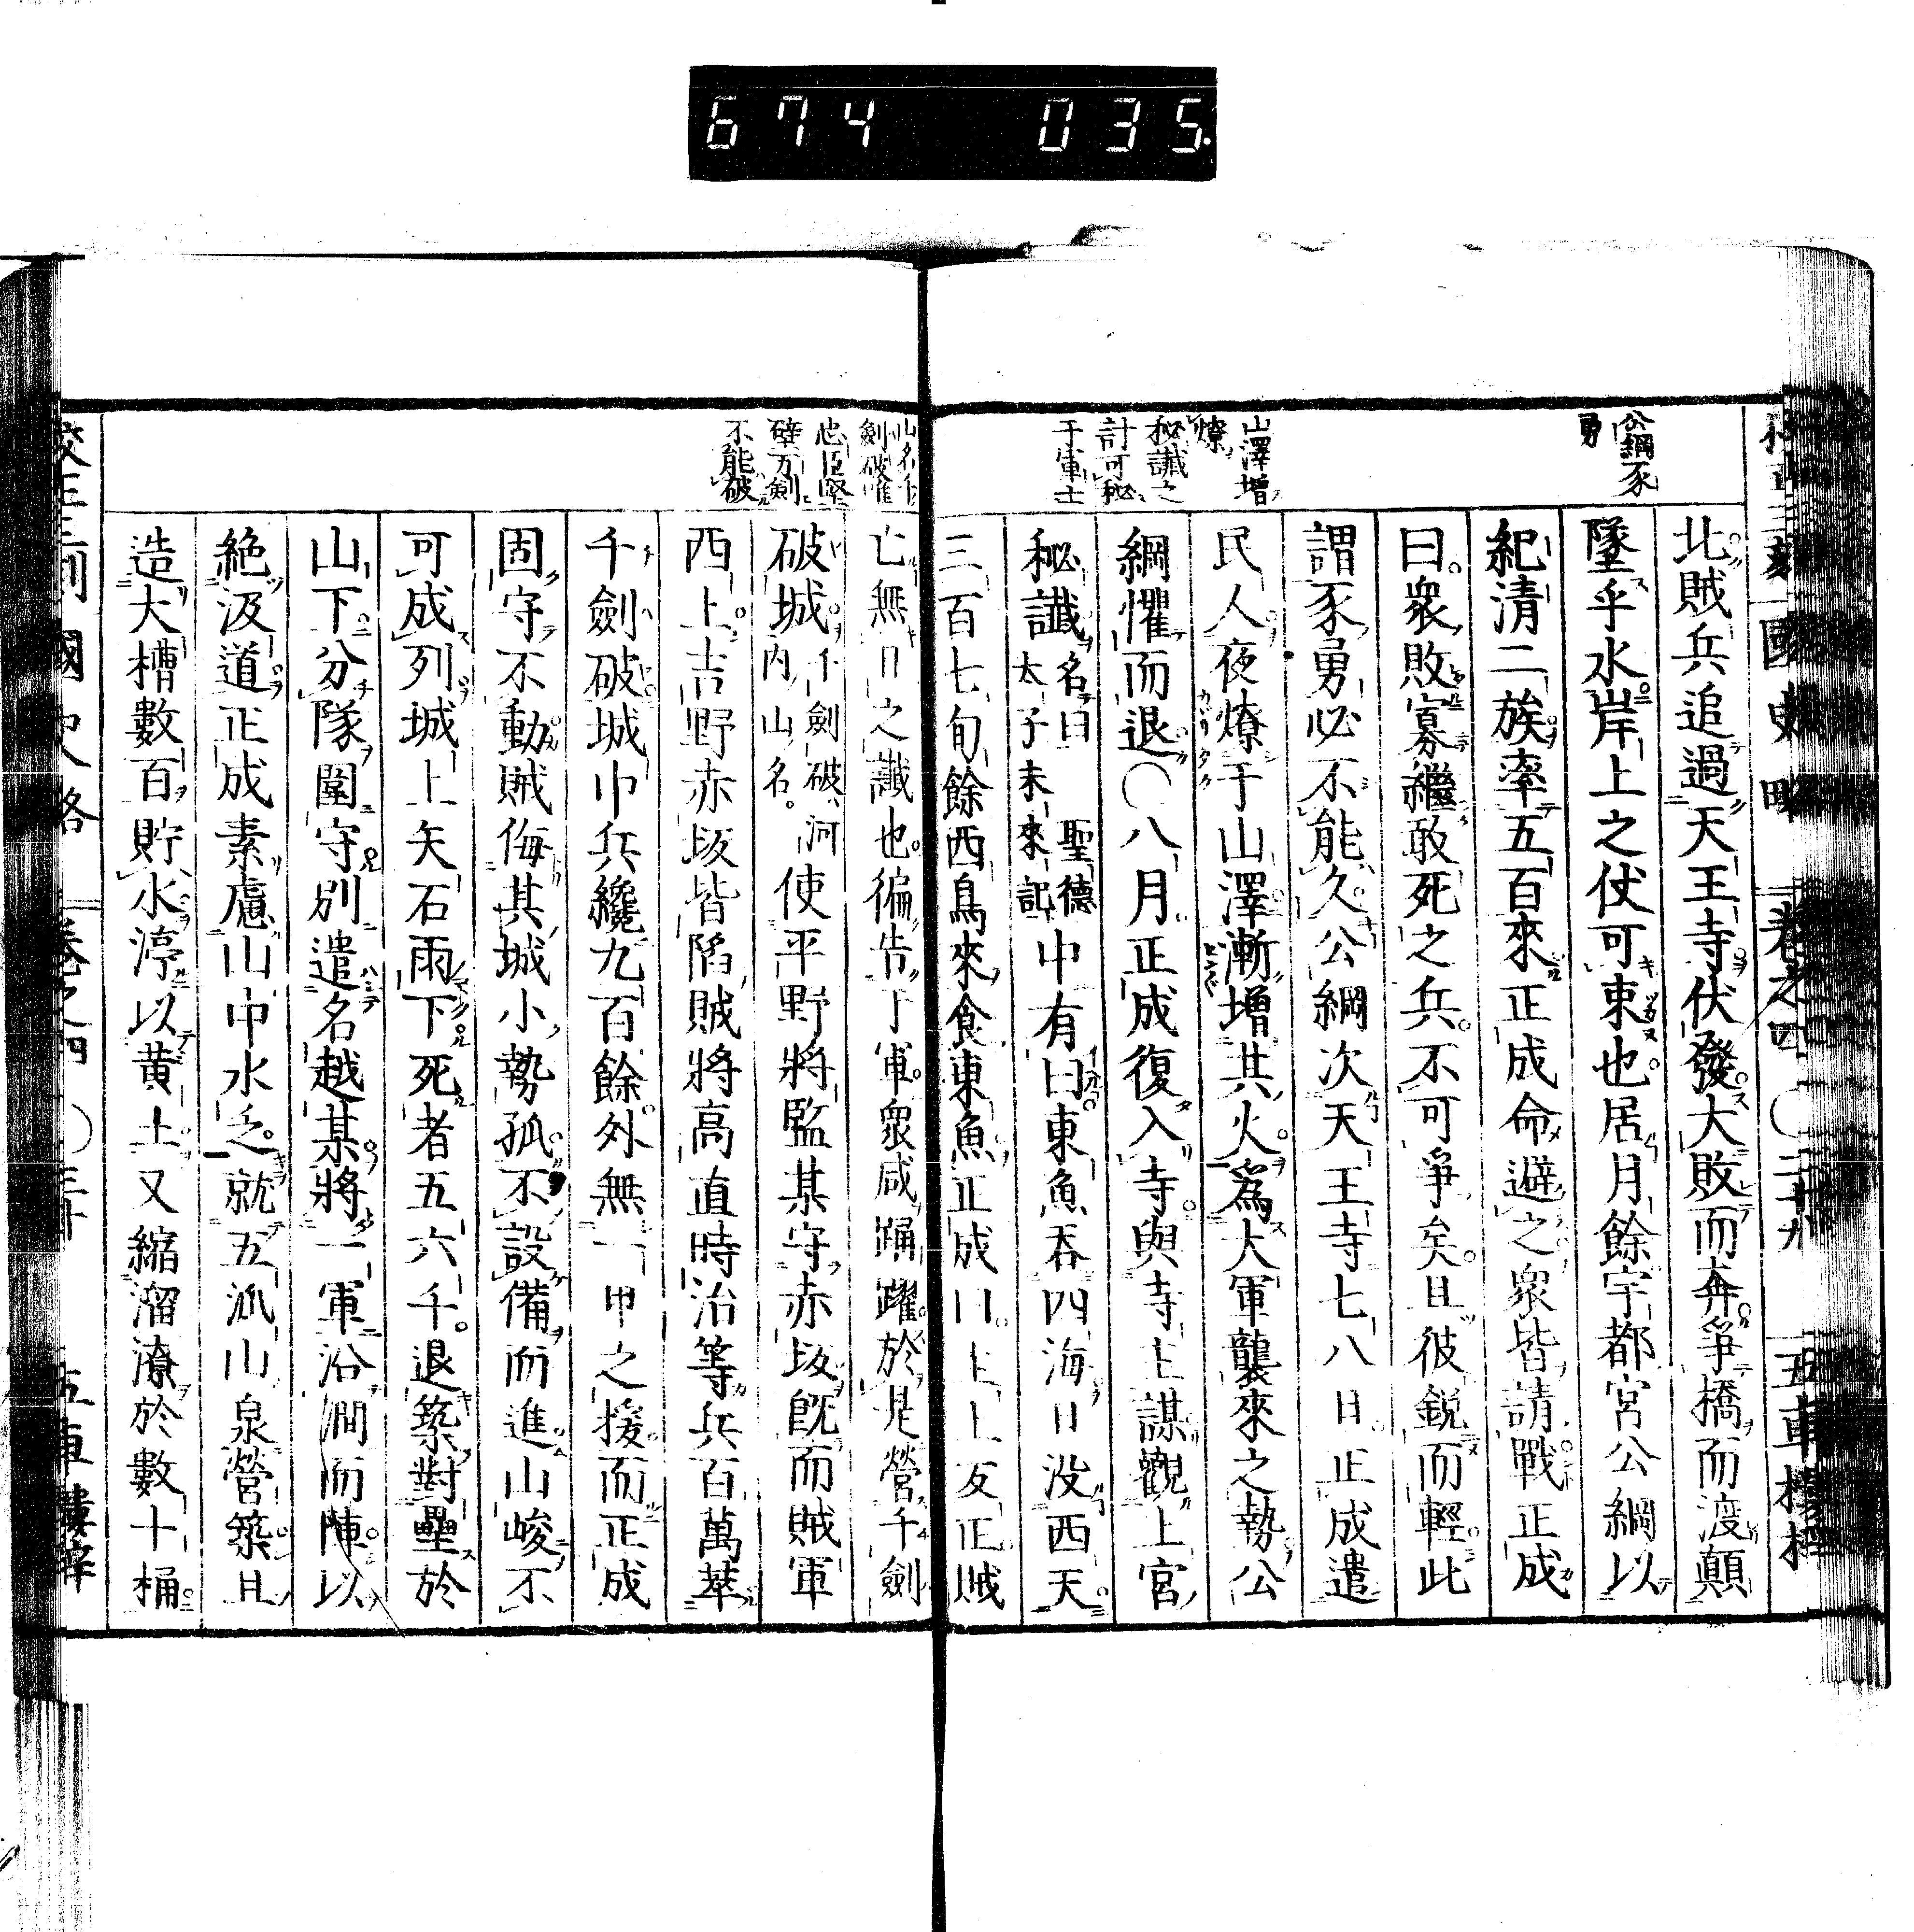 674 035
公綱豕
勇
山澤增
燎
秘讖之
計可秘
于軍士
北賊兵追過天王寺伏發大敗而奔爭橋而渡顛
墜乎水岸上之仗可束也居月餘宇都宮公綱以
紀清二族率五百來正成命避之衆皆請戰正成
曰衆敗寡繼敢死之兵不可爭矣且彼銳而輕此
謂豕勇必不能久公綱次天王寺七八日正成遣
民人夜燎于山澤漸增其火爲大軍襲來之勢公
綱懼而退〇八月正成復入寺與寺主謀觀上宮
秘讖名曰聖德太子未來記中有曰東魚吞四海日没西天
三百七旬餘西鳥來食東魚正成曰上上友正賊
山名千
劍破唯
忠臣堅
壁万劍
不能破
亡無日之讖也徧告于軍衆咸踊躍於是營千劍
破城千劍破河内山名。使平野將監某守赤坂既而賊軍
西上吉野赤坂皆陷賊將高直時治等兵百萬萃
千劍破城中兵纔九百餘外無一甲之援而正成
固守不動賊侮其城小勢孤不設備而進山峻不
可成列城上矢石雨下死者五六千退築對壘於
山下分隊圍守別遣名越某將一軍沿澗而陣以
絶汲道正成素慮山中水乏就五泒山泉營築且
造大槽數百貯水渟以黄土又縮溜潦於數十桶